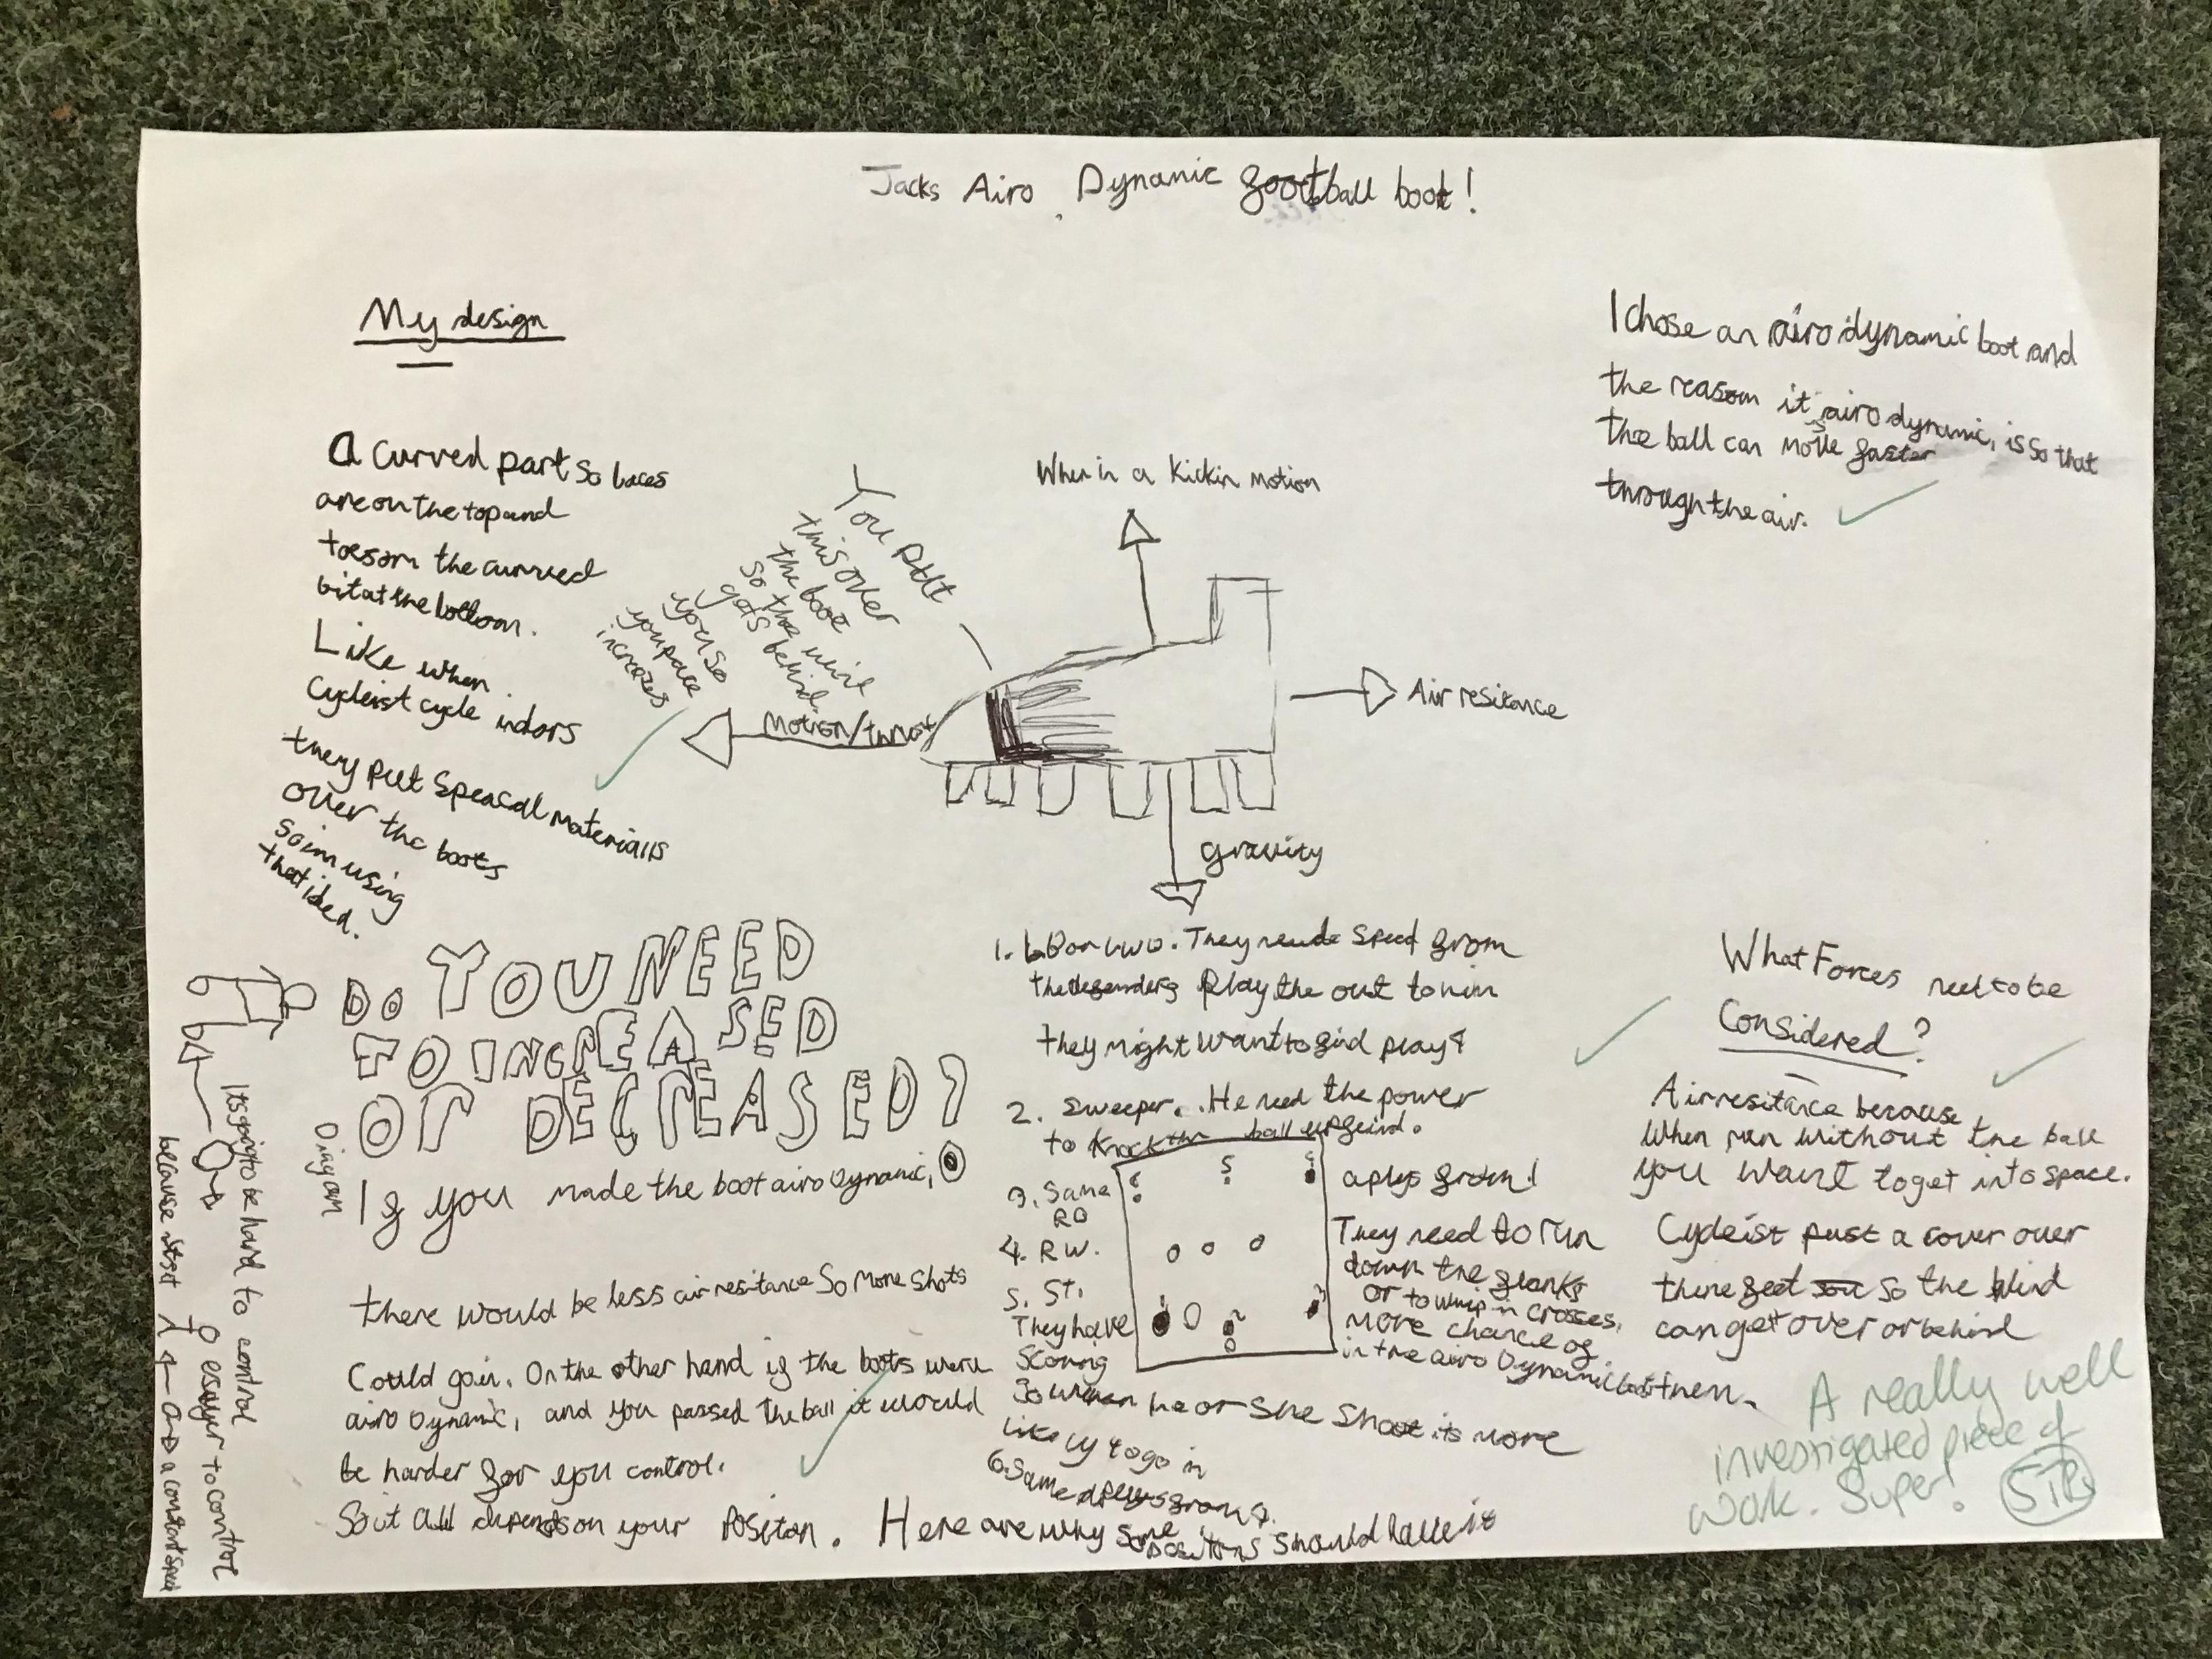 Jacks Airo Dynamic football boot!
My design
a curved part so laces
are on the top and
toes on the curved
bit at the bottom.
Like when
Cycleist cycle indors
they put speacal materialls
over the boots
so im using
that idea.
You put
this over
the boot
so the wind
gets behind
you so
you pace
increases
When in a kickin motion
Motion/thrust
Air resitance
gravity
I chose an airo dynamic boot and
the reason it airo dynamic, is so that
the ball can move faster
through the air.
DO YOU NEED
TO INCREASED
or DECREASED?
If you made the boot airo Dynamic,
there would be less air resitance so more shots
Could go in. On the other hand if the boots were
airo Dynamic, and you passed the ball it would
be harder for you control.
So it all depends on your Positon. Here are why some positions should have it
Diagam
Its going to be hard to control
because
easyer to control
a constant speed
1. They speed from
the defenders Play the out to him
they might want to find play 4
2. Sweeper. He need the power
to knock the ball upfeild.
3. Same
4. RW.
5. St.
They have
Scoring
So when he or she shoot its more
likely to go in
6. Same as
They need to run
down the flanks
or to whip in crosses,
more chance of
in the airo Dynamic boot
What Forces need to be
Considered?
Air resitance because
when run without the ball
you want to get into space.
Cycleist put a cover over
there feet so the wind
can get over or behind
them.
A really well
investigated piece of
work. Super!